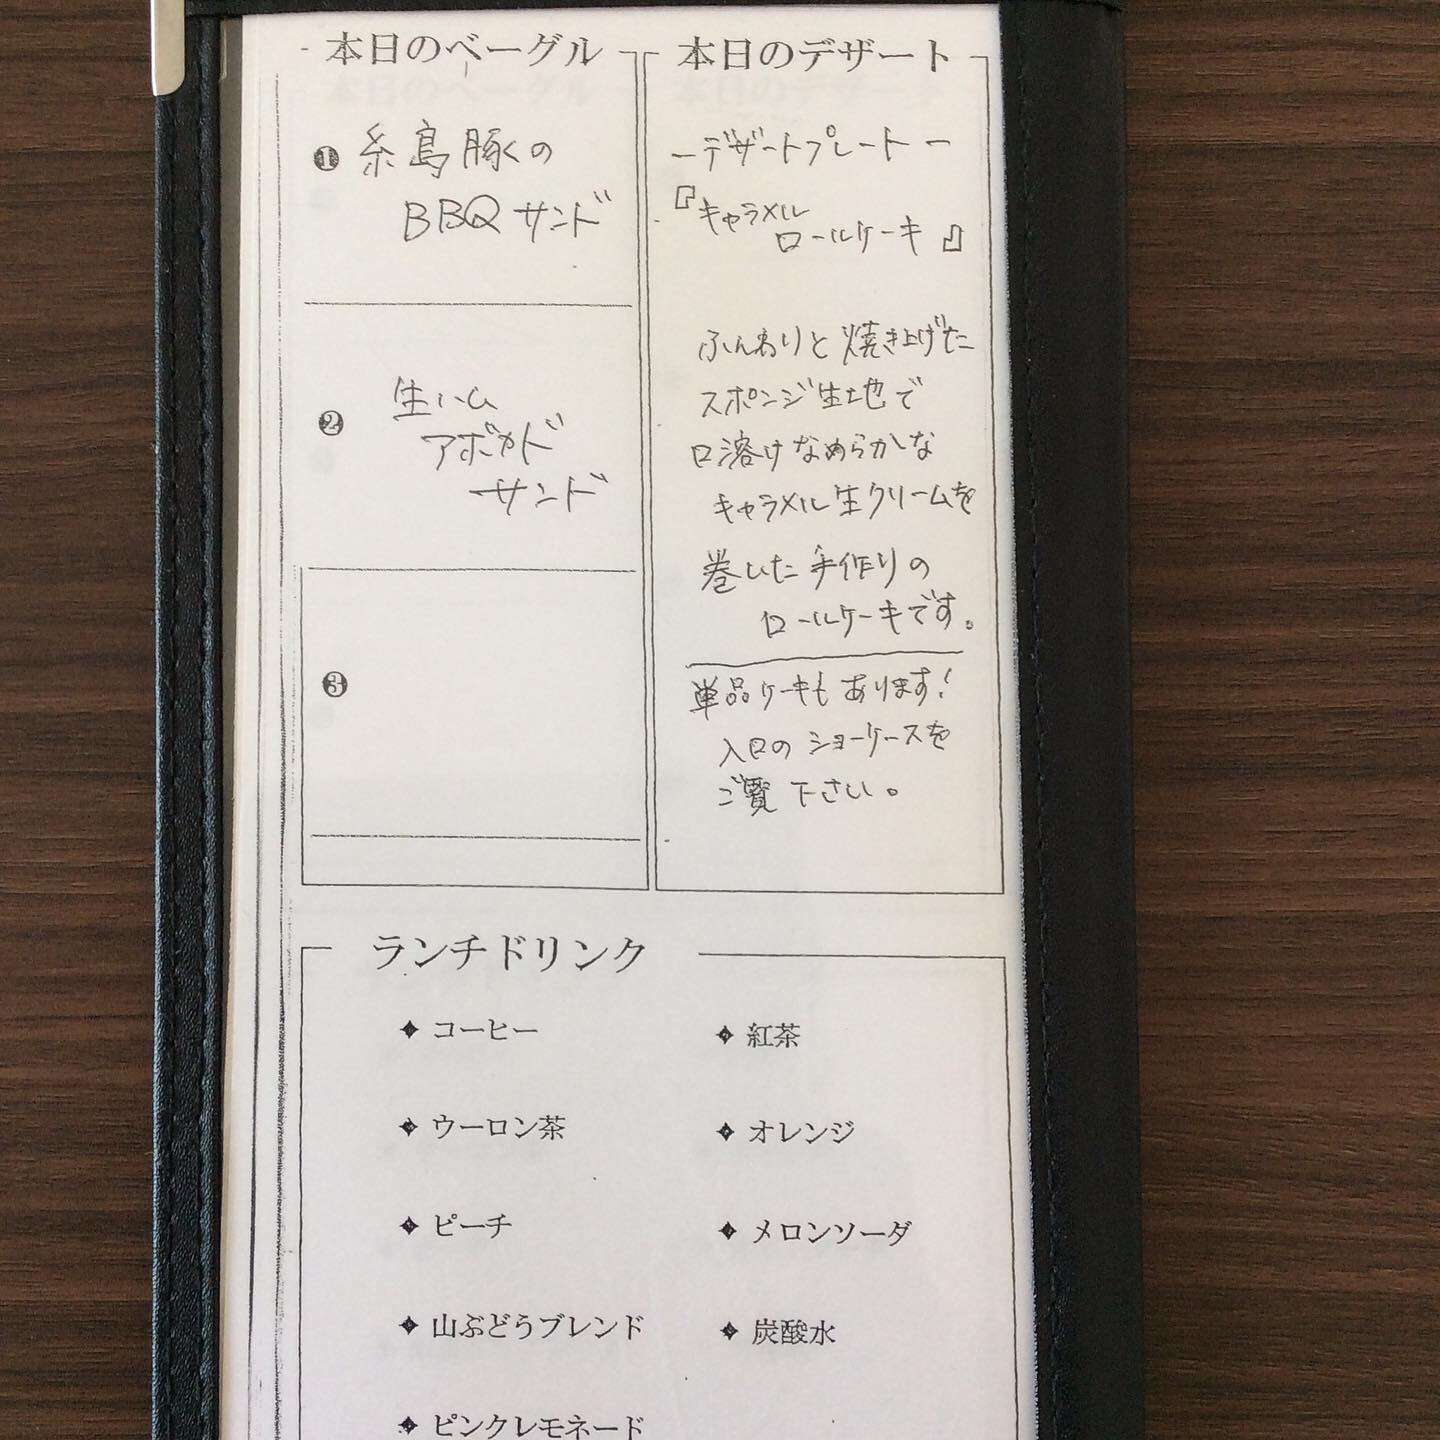 本日のベーグル
❶ 糸島豚の
BBQサンド
❷ 生ハム
アボカド
サンド
❸
本日のデザート
ーデザートプレートー
『キャラメル
ロールケーキ』
ふんわりと焼き上げた
スポンジ生地で
口溶けなめらかな
キャラメル生クリームを
巻いた手作りの
ロールケーキです。
単品ケーキもあります!
入口のショーケースを
ご覧下さい。
ランチドリンク
コーヒー
紅茶
ウーロン茶
オレンジ
ピーチ
メロンソーダ
山ぶどうブレンド
炭酸水
ピンクレモネード